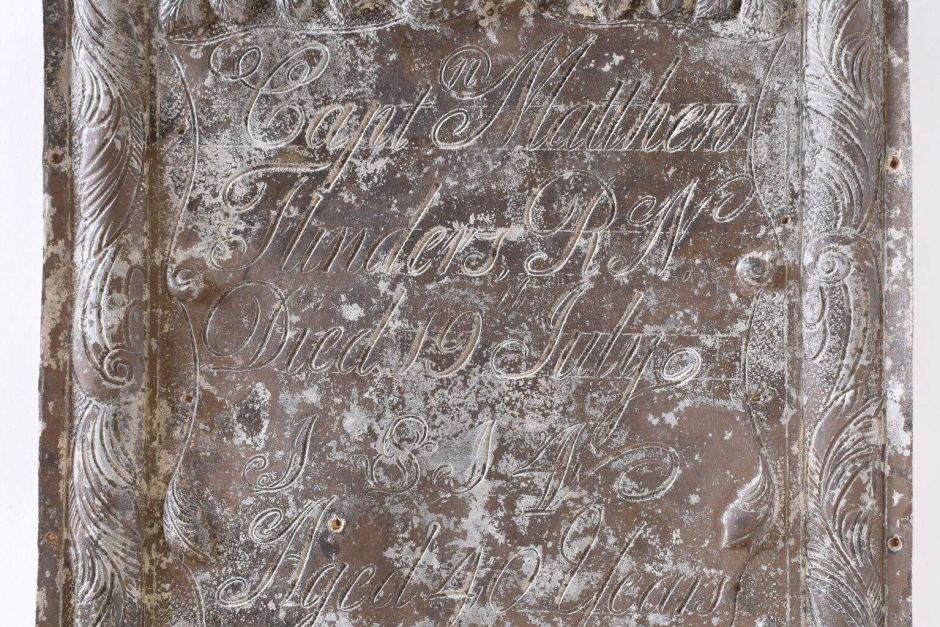 Captn Matthew
Flinders, RN
Died 19th July
1814
Aged 40 Years